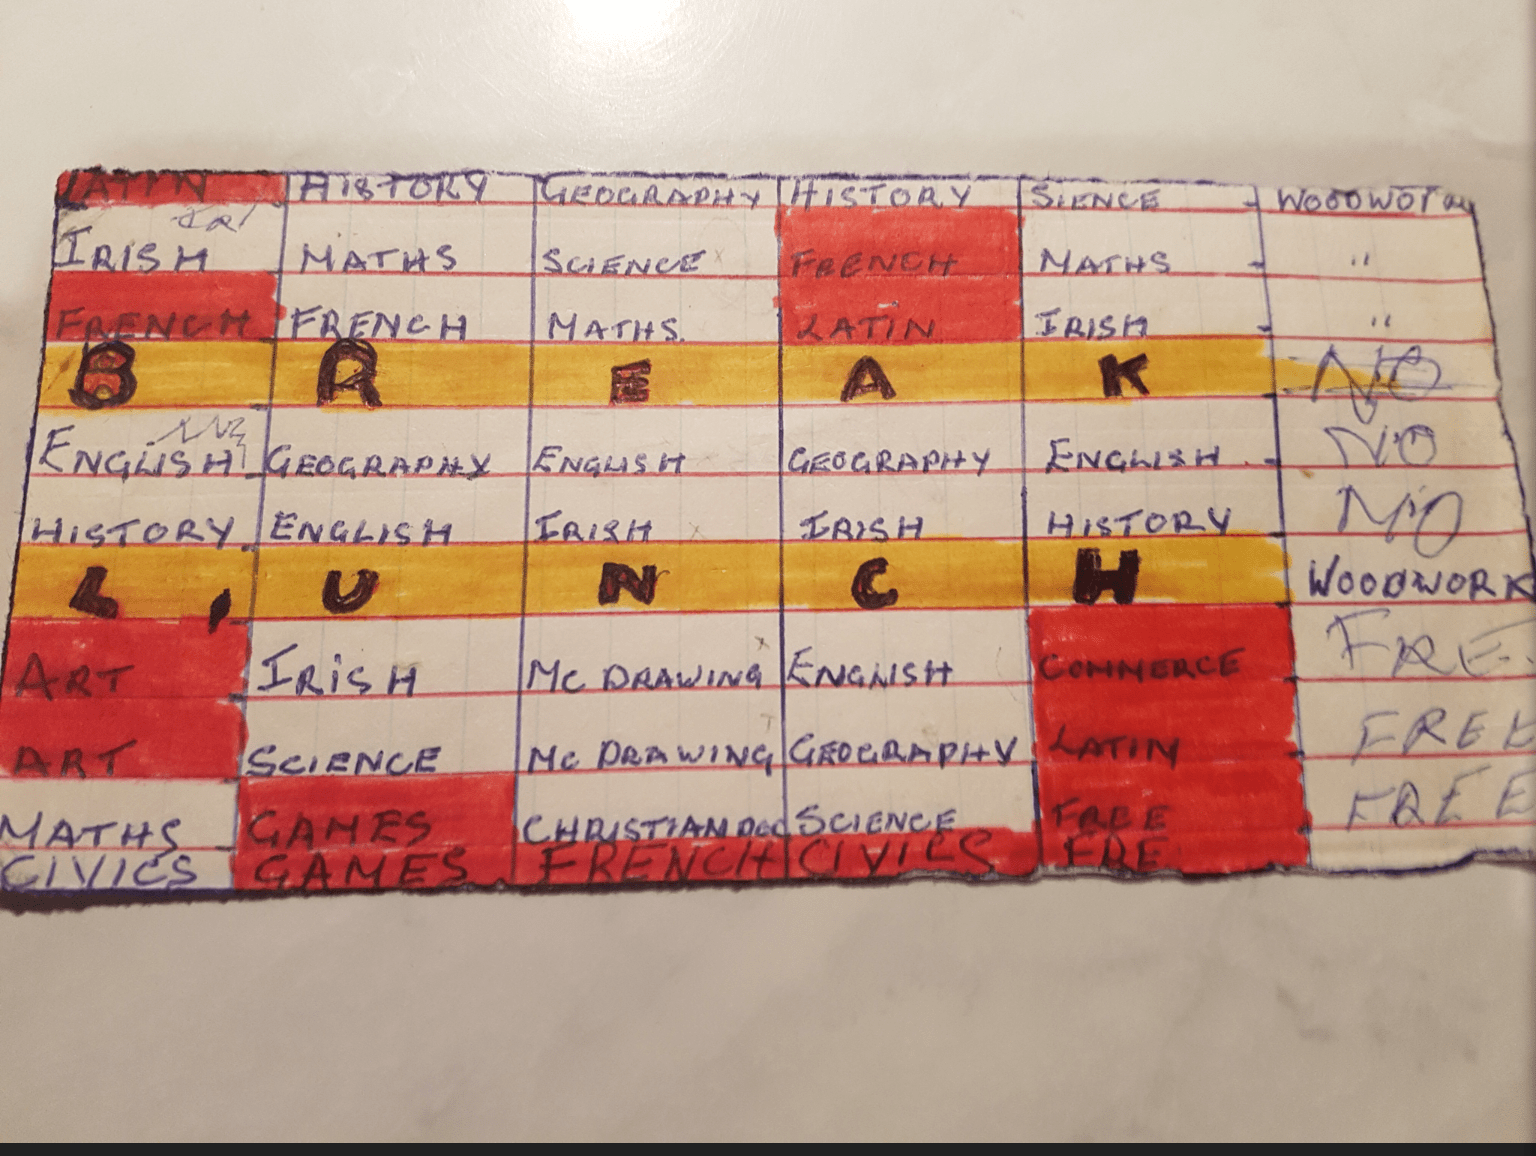 LATIN HISTORY GEOGRAPHY HISTORY SIENCE
IRISH MATHS SCIENCE FRENCH MATHS "
FRENCH FRENCH MATHS. LATIN IRISH "
B R E A K NO
ENGLISH GEOGRAPHY ENGLISH GEOGRAPHY ENGLISH NO
HISTORY ENGLISH IRISH IRISH HISTORY NO
L, U N C H WOODWORK
ART IRISH MC DRAWING ENGLISH COMMERCE FREE
ART SCIENCE MC DRAWING GEOGRAPHY LATIN FREE
MATHS GAMES CHRISTIAN DOC SCIENCE FREE FREE
CIVICS GAMES FRENCH CIVICS FRE